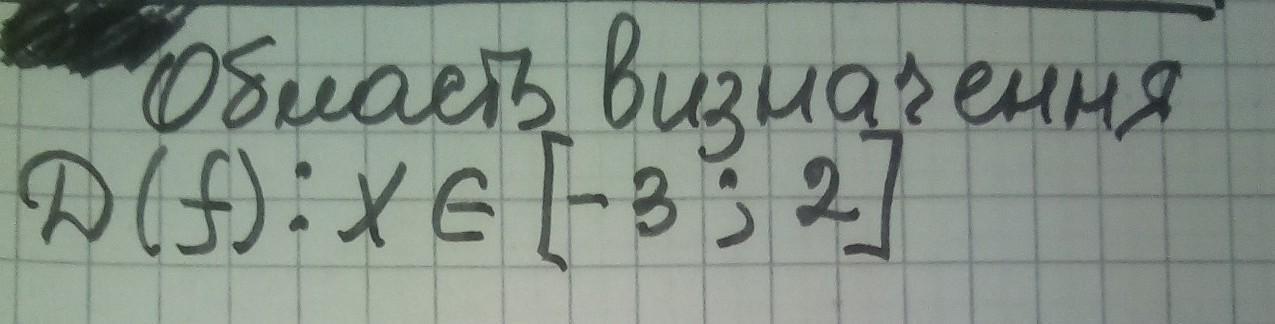 Область визначення
D(f): x ∈ [-3 ; 2]